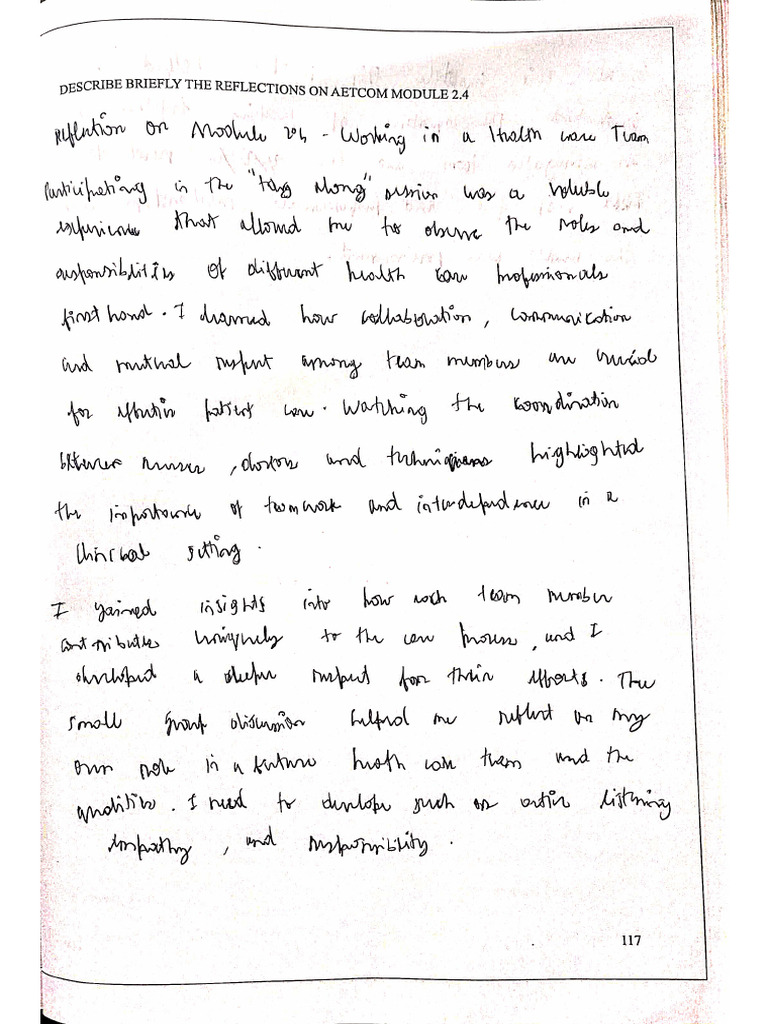 DESCRIBE BRIEFLY THE REFLECTIONS ON AETCOM MODULE 2.4
Reflection on Module 2.4 - Working in a Health care Team
Participating in the "tag along" session was a valuable
experience that allowed me to observe the roles and
responsibilities of different health care professionals
first hand. I learned how collaboration, communication
and mutual respect among team members are crucial
for effective patient care. Watching the coordination
between nurses, doctors and technicians highlighted
the importance of teamwork and interdependence in a
clinical setting.
I gained insights into how each team member
contributes uniquely to the care process, and I
developed a deeper respect for their efforts. The
small group discussion helped me reflect on my
own role in a future health care team and the
qualities. I need to develop such as active listening
empathy, and responsibility.
117